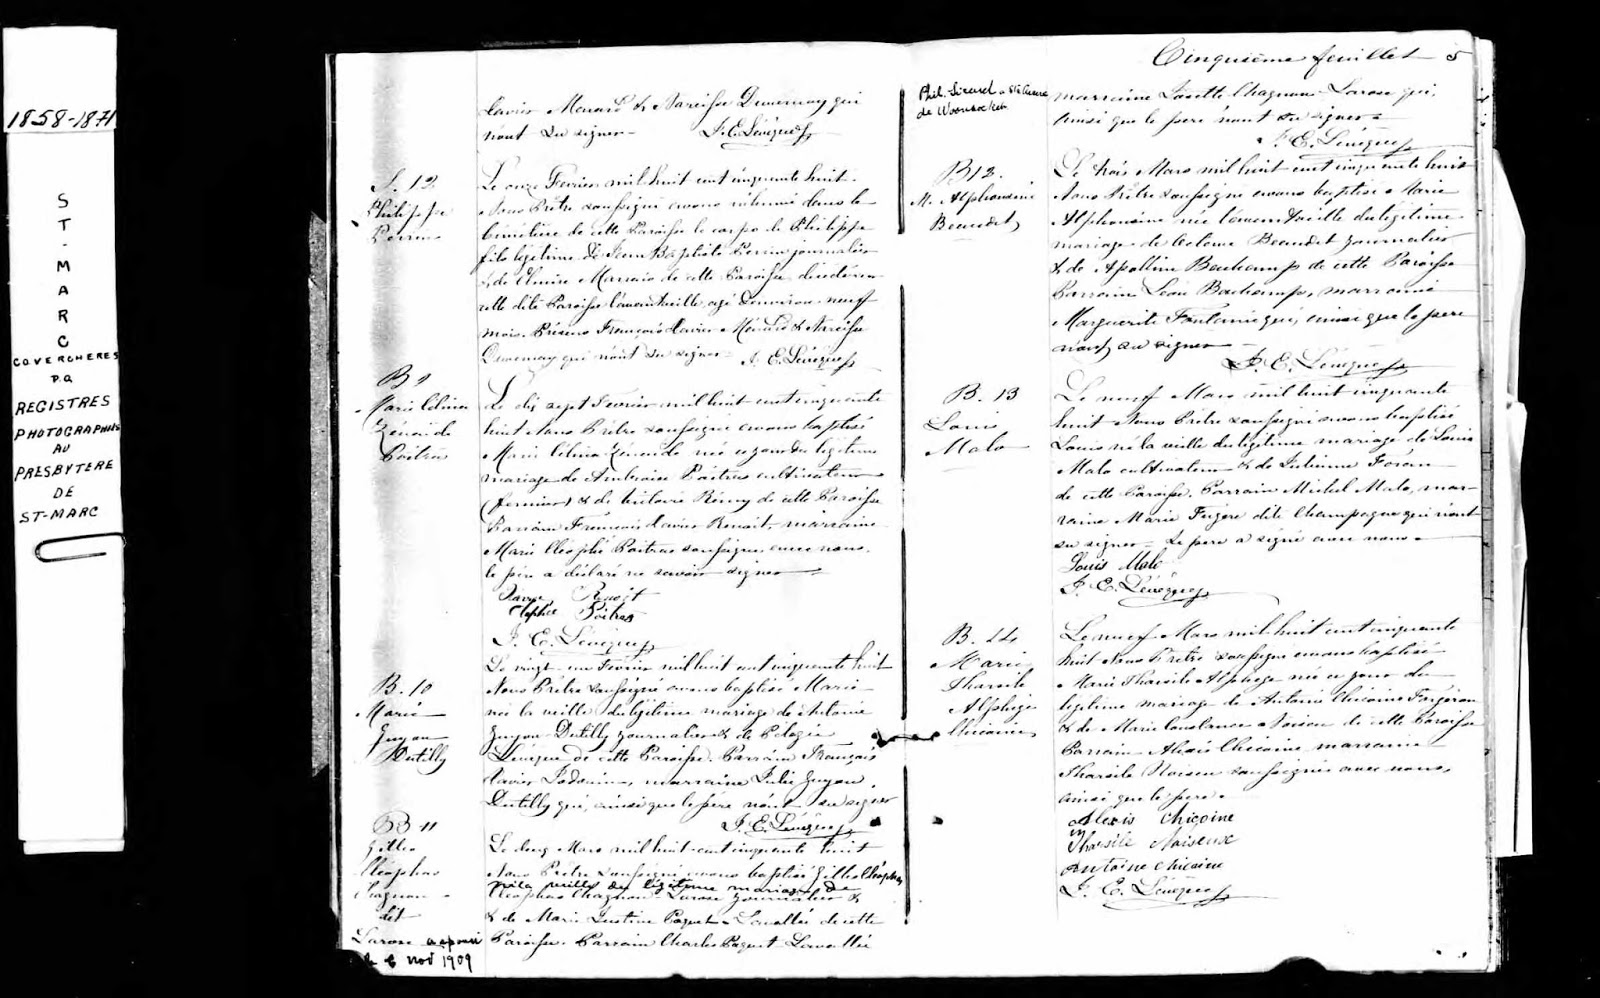 1858-1871
ST-MARC
COVERCHERES
P.Q
REGISTRES
PHOTOGRAPHIÉS
AU
PRESBYTERE
DE
ST-MARC
Xavier Menard & Narcisse Duvernay qui
n'ont su signer - J. E. Lévêque
S. 12
Philippe
Perrin
Le onze Fevrier mil huit cent cinquante huit
Nous Prêtre soussigné avons inhumé dans le
Cimetière de cette Paroisse le corps de Philippe
fils légitime de Jean Baptiste Perrin journalier
& de de cette Paroisse décédé en
cette dite Paroisse l'avant veille agé d'environ neuf
mois. Présens François Xavier Ménard & Narcisse
Duvernay qui n'ont su signer - J. E. Lévêque
B 9
Marie Célina
Zénaïde
Poitras
Le dix sept Fevrier mil huit cent cinquante
huit Nous Prêtre soussigné avons baptisé
Marie Célina Zénaïde née ce jour du légitime
mariage de Ambroise Poitras cultivateur
(fermier) & de Victoire Rémy de cette Paroisse
Parrain François Xavier Benoit - marraine
Marie Cléophée Poitras soussignée avec nous.
le père a déclaré ne savoir signer
Benoit
Poitras
J. E. Lévêque
B. 10
Marie
Guyon
Dutilly
Le vingt un Fevrier mil huit cent cinquante huit
Nous Prêtre soussigné avons baptisé Marie
née la veille du légitime mariage de Antoine
Guyon Dutilly journalier & de Pélagie
Lévêque de cette Paroisse. Parrain François
Xavier Jodouin, marraine Julie Guyon
Dutilly qui, ainsi que le père n'ont su signer
J. E. Lévêque
B 11
Gilles
Cléophas
Chagnon
dit
Larose a épousé
le 6 nov 1909
Le deux Mars mil huit cent cinquante huit
Nous Prêtre soussigné avons baptisé Gilles Cléophas
né la veille du légitime mariage de
Cléophas Chagnon Larose journalier &
& de Marie Justine Paquet Lavallée de cette
Paroisse. Parrain Charles Paquet Lavallée
Cinquième feuillet 5
Phil. Sicard a Ste
de Woonsocket
marraine Josette Chagnon Larose qui,
ainsi que le père n'ont su signer -
J. E. Lévêque
B 12.
M. Alphonsine
Beaudet
Le trois Mars mil huit cent cinquante huit
Nous Prêtre soussigné avons baptisé Marie
Alphonsine née l'avant veille du légitime
mariage de Beaudet journalier
& de Apolline Beauchamp de cette Paroisse
Parrain Léon Beauchamp, marraine
Marguerite Fontaine qui, ainsi que le père
n'ont su signer -
J. E. Lévêque
B. 13
Louis
Malo
Le neuf Mars mil huit cinquante
huit Nous Prêtre soussigné avons baptisé
Louis né la veille du légitime mariage de Louis
Malo cultivateur & de Julienne Foran
de cette Paroisse. Parrain Michel Malo, mar-
raine Marie Fugère dite Champagne qui n'ont
su signer - Le père a signé avec nous -
Louis Malo
J. E. Lévêque
B. 14
Marie
Tharsile
Alphège
Chicoine
Le neuf Mars mil huit cent cinquante
huit Nous Prêtre soussigné avons baptisé
Marie Tharsile Alphège née ce jour du
légitime mariage de Antoine Chicoine Forgeron
& de Marie Constance Noiseux de cette Paroisse
Parrain Alexis Chicoine, marraine
Tharsile Noiseux soussignés avec nous,
ainsi que le père.
Alexis Chicoine
Tharsile Noiseux
Antoine Chicoine
J. E. Lévêque